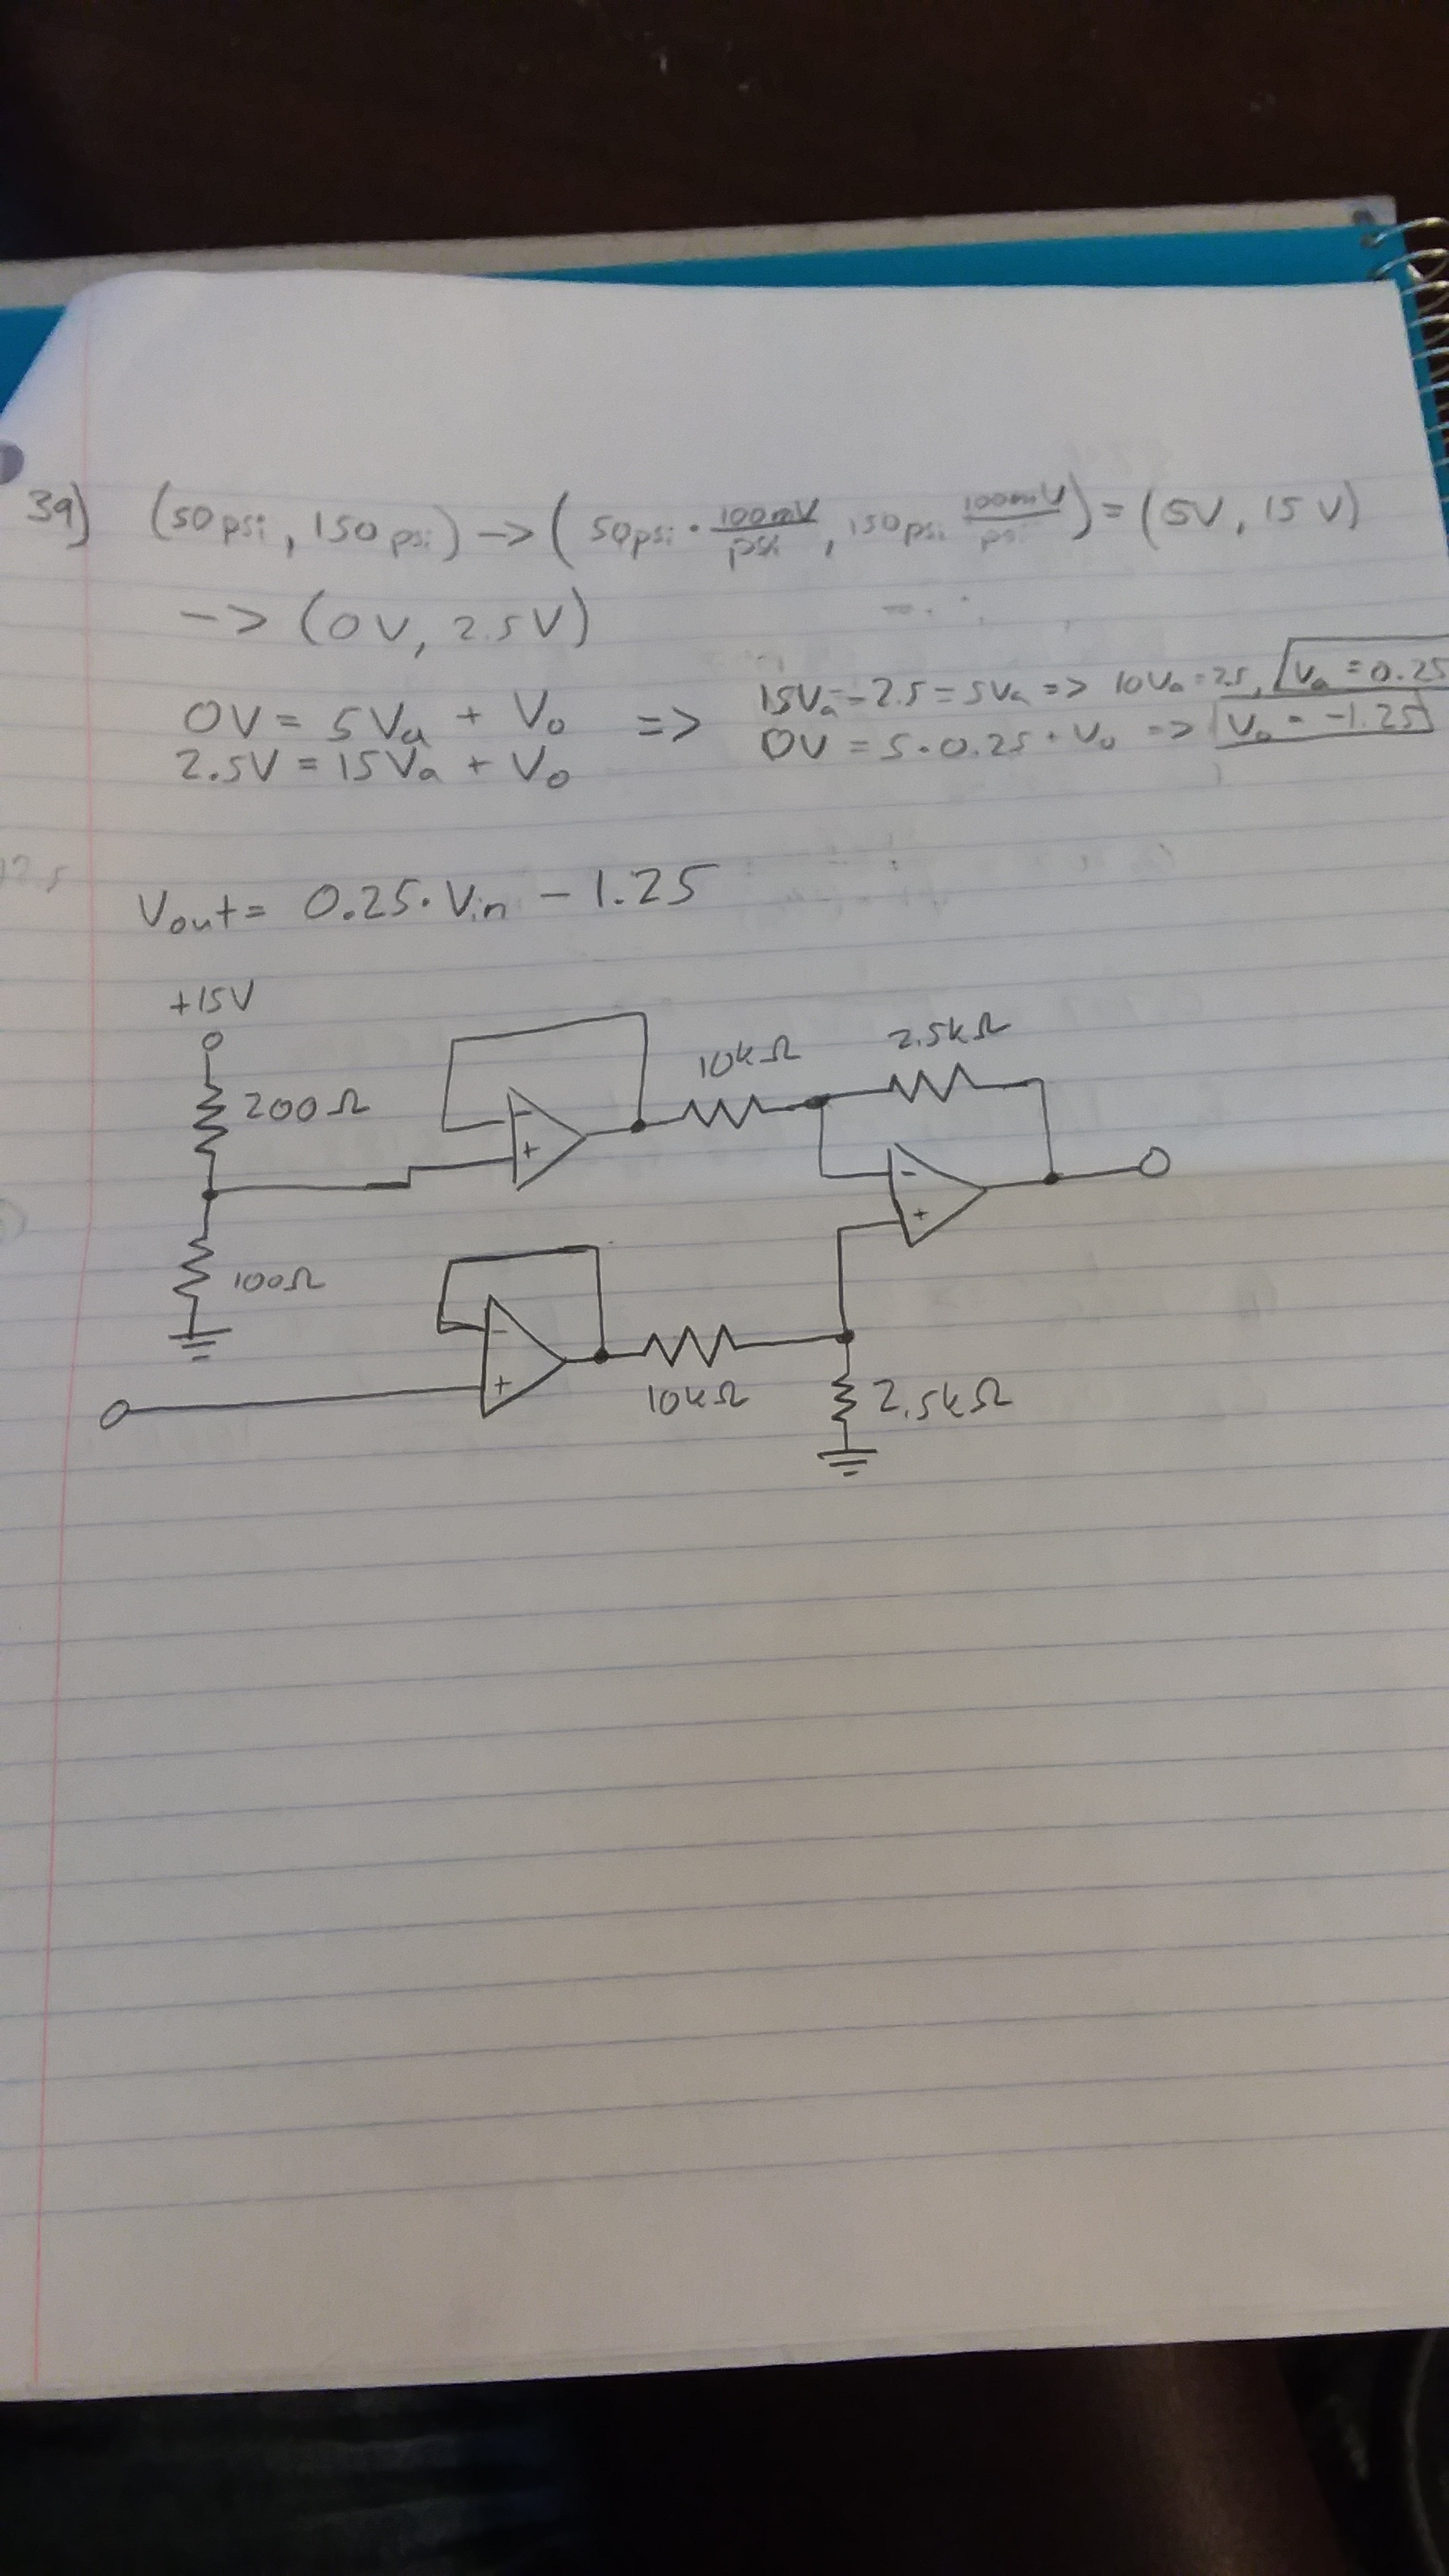 3a) (50psi, 150psi) -> (50psi · 100mV/psi, 150psi 100mV/psi) = (5V, 15V)
-> (0V, 2.5V)
0V = 5Va + Vo => 15Va - 2.5 = 5Va => 10Va = 2.5, Va = 0.25
2.5V = 15Va + Vo 0V = 5·0.25 + Vo => Vo = -1.25
Vout = 0.25·Vin - 1.25
+15V
200Ω
100Ω
10kΩ
2.5kΩ
- +
- +
- +
10kΩ
2.5kΩ